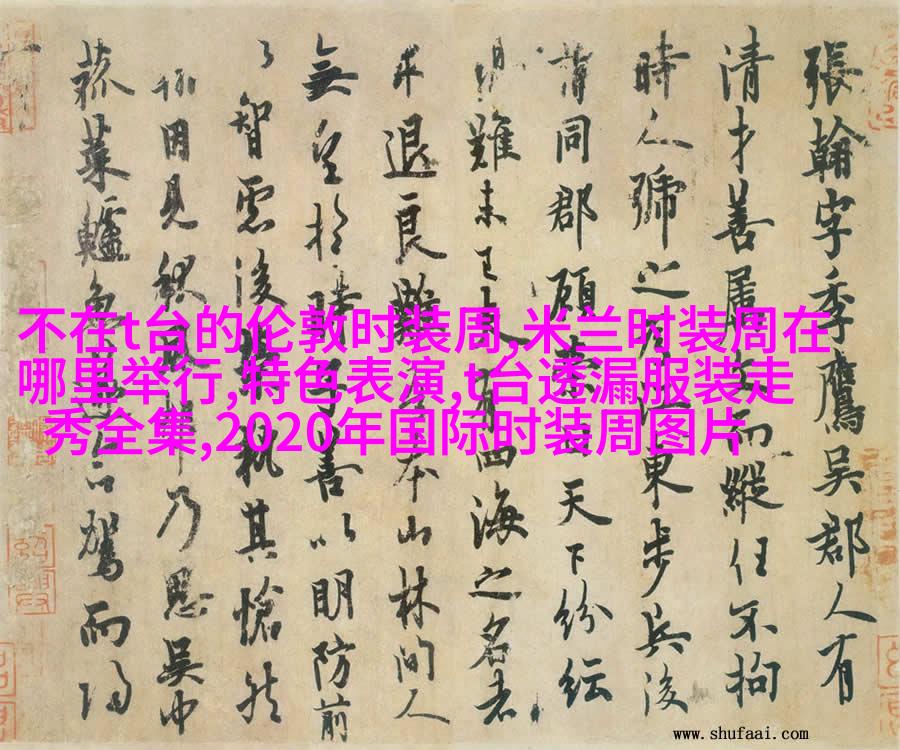 張翰字季鷹吳郡人有
清才善屬文而縱任不拘
時人號之為江東步兵後
謂同郡顧榮曰天下紛紜
難未已夫有四海之名者
求退良難吾本山林間人
無望於時子善以明防前
以智慮後榮執其愴然
翰因見秋風起乃思吳中
菰菜鱸魚遂命駕而歸
不在t台的伦敦时装周,米兰时装周在
哪里举行,特色表演,t台透漏服装走
秀全集,2020年国际时装周图片
www.shufaai.com